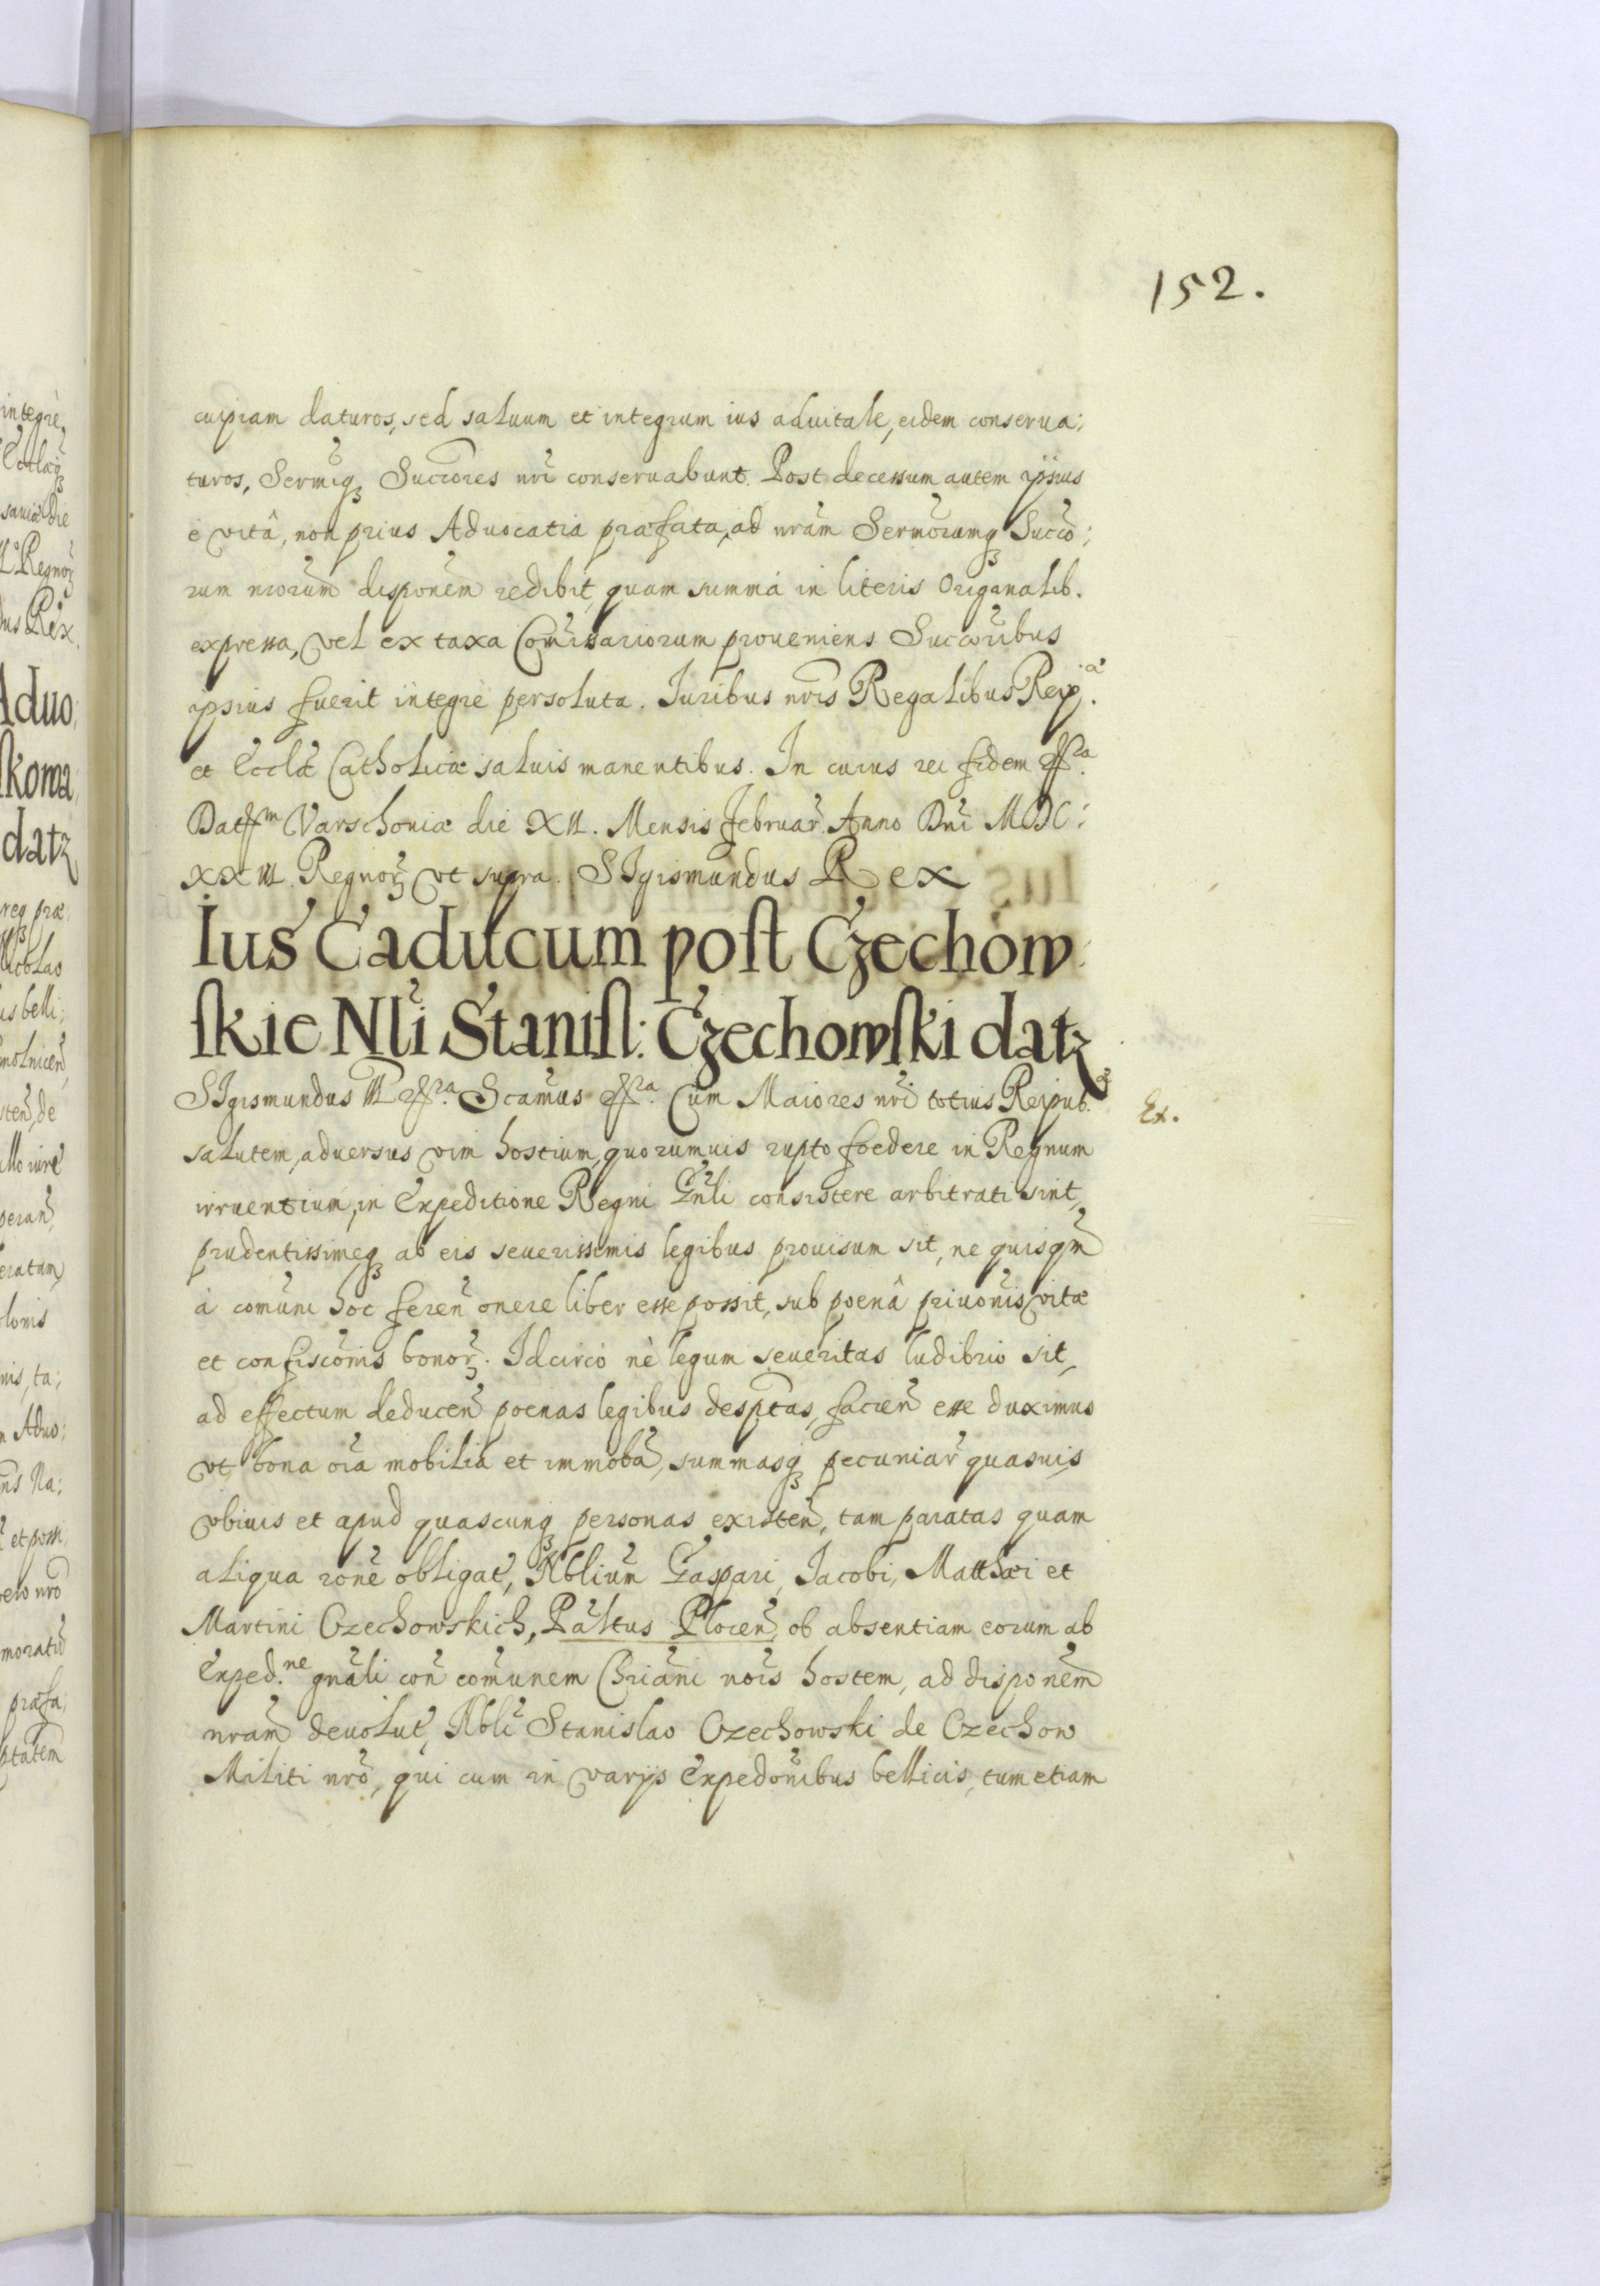 152.
cuipiam daturos, sed saluum et integrum ius aduitale, eidem conserua:
turos, Sermiq3 Succores nri conseruabunt. Post decessum autem ipsius
è vitâ, non prius Aduocatia præfata, ad nram Sermorumq3 Succo:
rum nrorum disponem redibit, quam summa in literis Originalib.
expressa, vel ex taxa Comissariorum proueniens Succoribus
ipsius fuerit integrè persoluta. Iuribus nris Regalibus Reip.
et Ecclæ Catholicæ saluis manentibus. In cuius rei fidem
Dat Varschoniæ die XII. Mensis Februar. Anno Dni MDC:
XXIII. Regnor3 vt supra. SIgismundus Rex
Ius Caducum post Czechow:
skie Nli Stanisl: Czechowski datz
SIgismundus III Scamus Cum Maiores nri totius Reipub.
Ex.
salutem, aduersus vim hostium, quorumuis rupto foedere in Regnum
irruentium, in Expeditione Regni Gnli consistere arbitrati sint,
prudentissimeq3 ab eis seuerissimis legibus prouisum sit, ne quisqm
à comuni hoc feren onere liber esse possit, sub poenâ priuonis vitæ
et confisconis bonor3. Idcirco nè legum seueritas ludibrio sit,
ad effectum deducen poenas legibus desptas, facien esse duximus
vt bona oia mobilia et immoba, summasq3 pecuniar quasuis
vbiuis et apud quascunq3 personas existen, tam paratas quam
aliqua rone obligat, Nblium Gaspari, Iacobi, Matthæi et
Martini Czechowskich, Paltus Plocen, ob absentiam eorum ab
Exped.ne gnali con comunem Chriani nois hostem, ad disponem
nram deuolut, Nbli Stanislao Czechowski de Czechow
Militi nro, qui cum in varijs Expedonibus bellicis, tum etiam